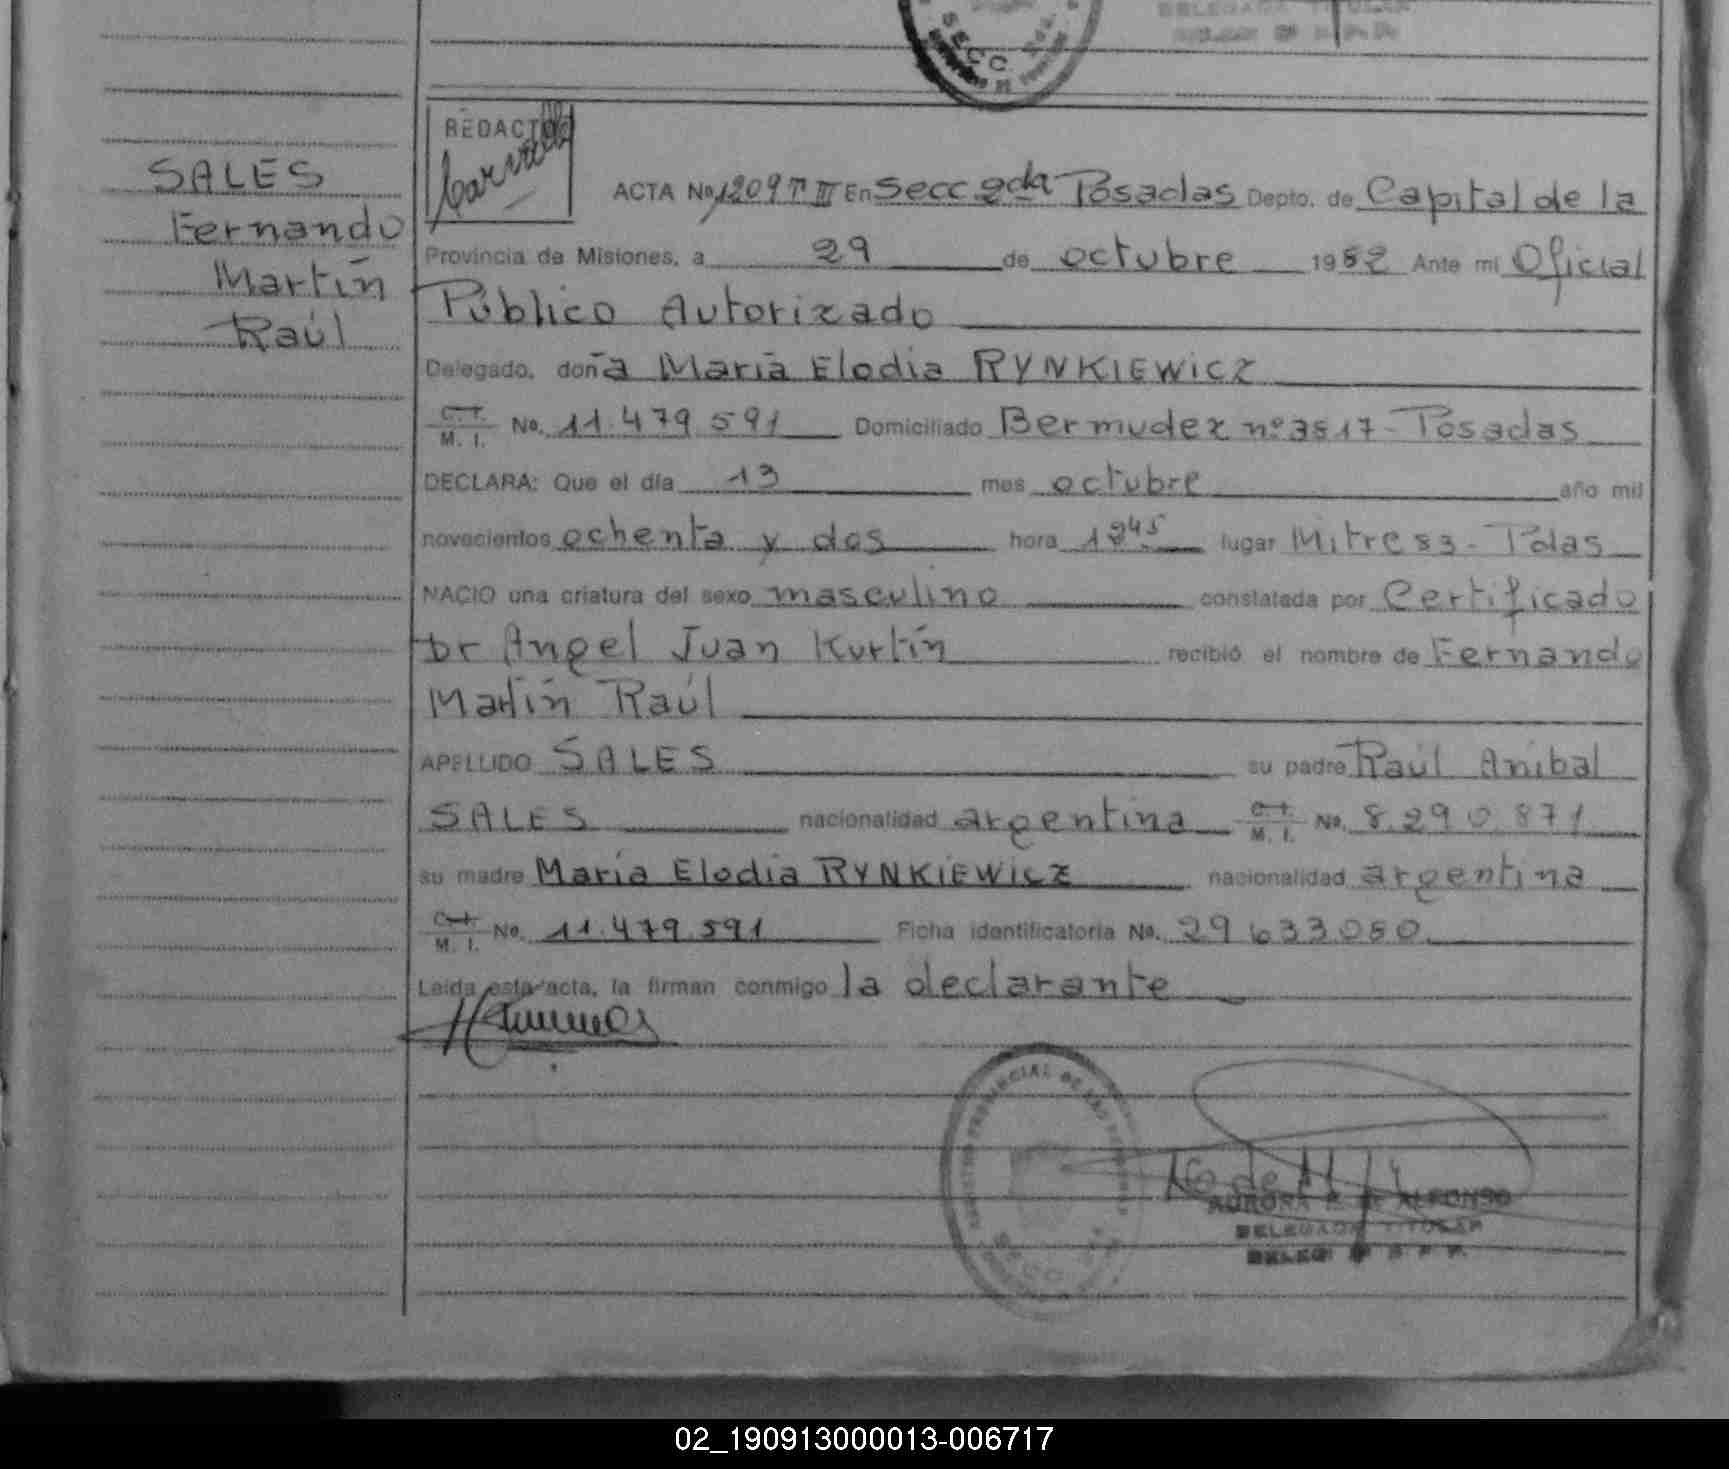 SECC
DELEGADA TITULAR
SALES
Fernando
Martín
Raúl
REDACTO
ACTA No 1209 T III En Secc 2da Posadas Depto. de Capital de la
Provincia de Misiones, a 29 de octubre 1982 Ante mi Oficial
Público Autorizado
Delegado, doña María Elodia RYNKIEWICZ
C. I. M. I. No. 11.479.591 Domiciliado Bermudez nº 3517 - Posadas
DECLARA: Que el día 13 mes octubre año mil
novecientos ochenta y dos hora lugar
NACIO una criatura del sexo masculino constatada por Certificado
Dr Angel Juan Kurtín recibió el nombre de Fernando
Martín Raúl
APELLIDO SALES su padre Raúl Anibal
SALES nacionalidad argentina C. I. M. I. No. 8.290.871
su madre María Elodia RYNKIEWICZ nacionalidad argentina
C. I. M. I. No. 11.479.591 Ficha identificatoria No. 29.633.050
Leida esta acta, la firman conmigo la declarante
PROVINCIAL DE LAS PERSONAS
SECC
AURORA DE ALFONSO
DELEGADA TITULAR
02_190913000013-006717